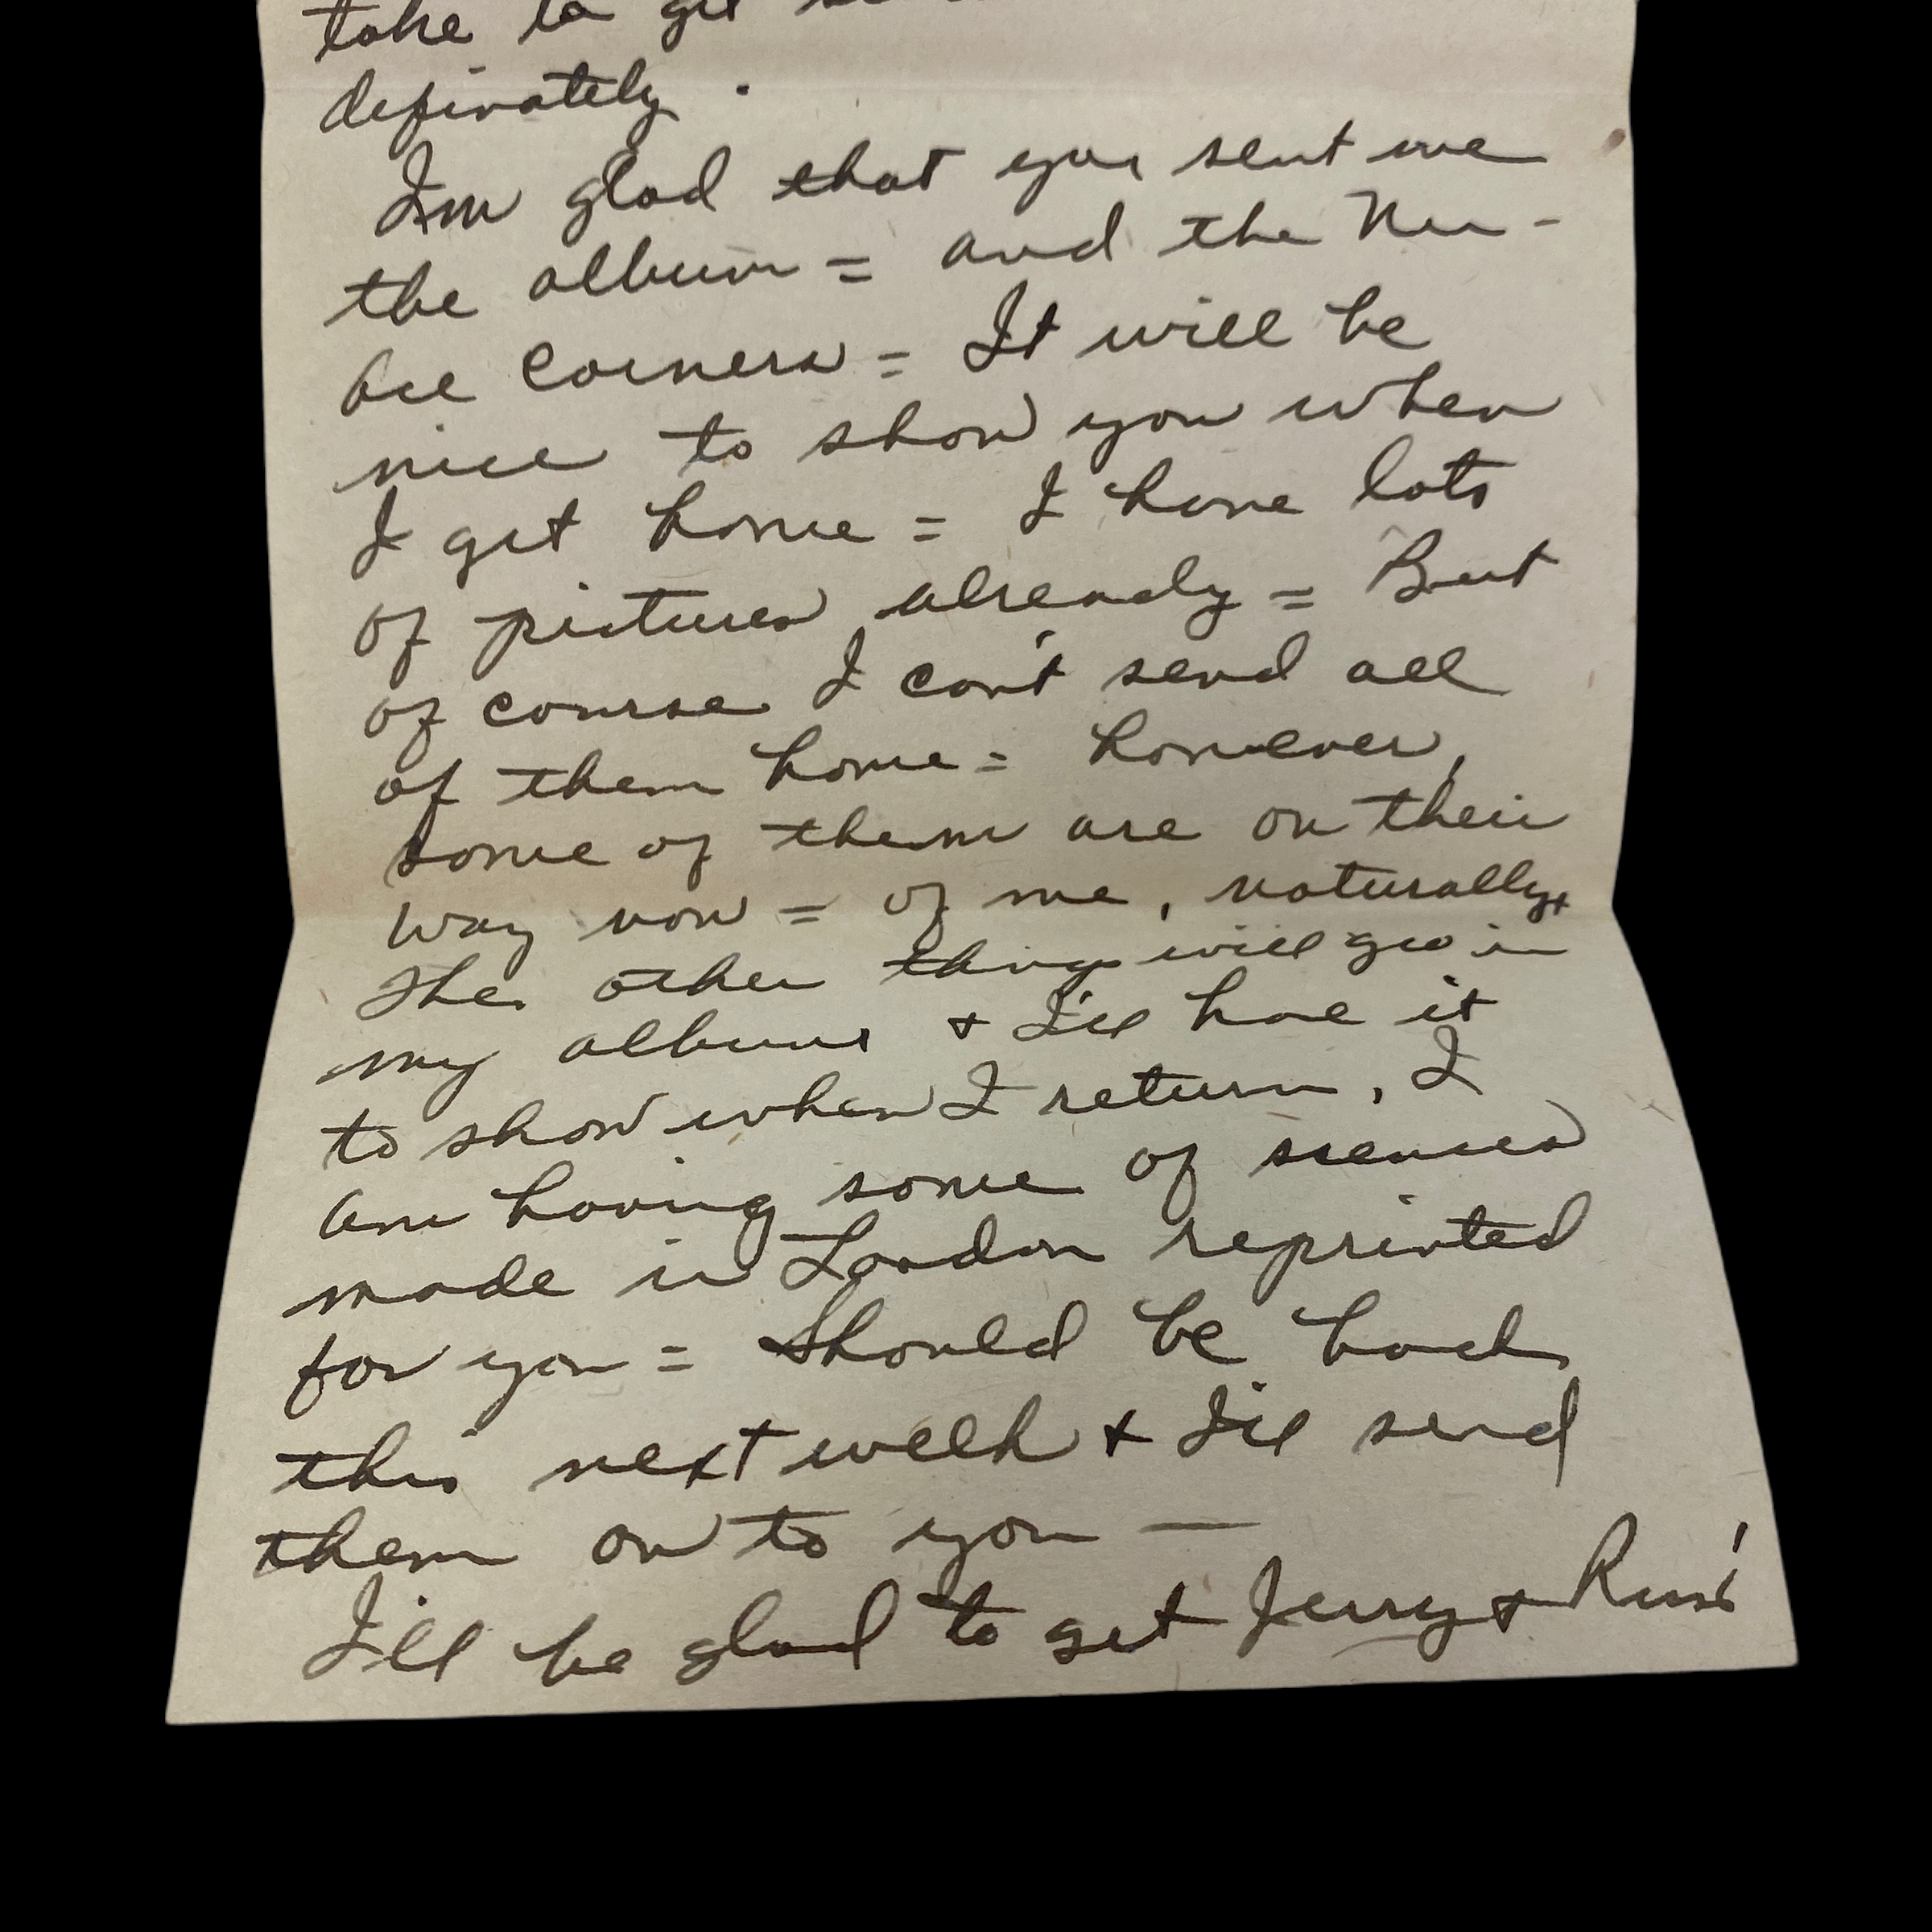 take to get
definately.
I'm glad that you sent me
the album = and the Nu-
Ace Corners = It will be
nice to show you when
I get home = I have lots
of pictures already = But
of course I can't send all
of them home = however,
some of them are on their
way now = of me, naturally,
The other things will go in
my album & I'll have it
to show when I return, I
am having some of scenes
made in London reprinted
for you = Should be back
this next week & I'll send
them on to you —
I'll be glad to get Jerry & Russ'